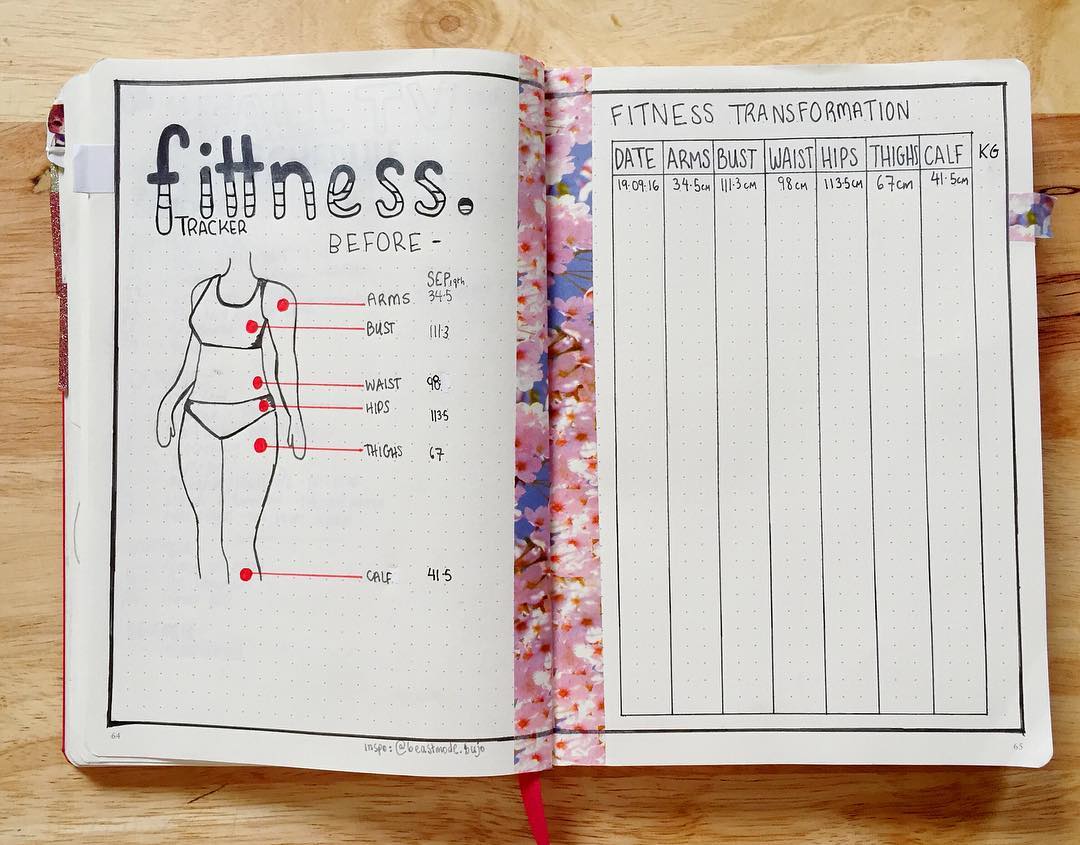 fittness.
TRACKER
BEFORE -
SEP 19th
ARMS 34.5
BUST 111.3
WAIST 98
HIPS 113.5
THIGHS 67
CALF 41.5
64
inspo: @beastmode.bujo
FITNESS TRANSFORMATION
DATE ARMS BUST WAIST HIPS THIGHS CALF KG
19.09.16 34.5cm 111.3cm 98cm 113.5cm 67cm 41.5cm
65